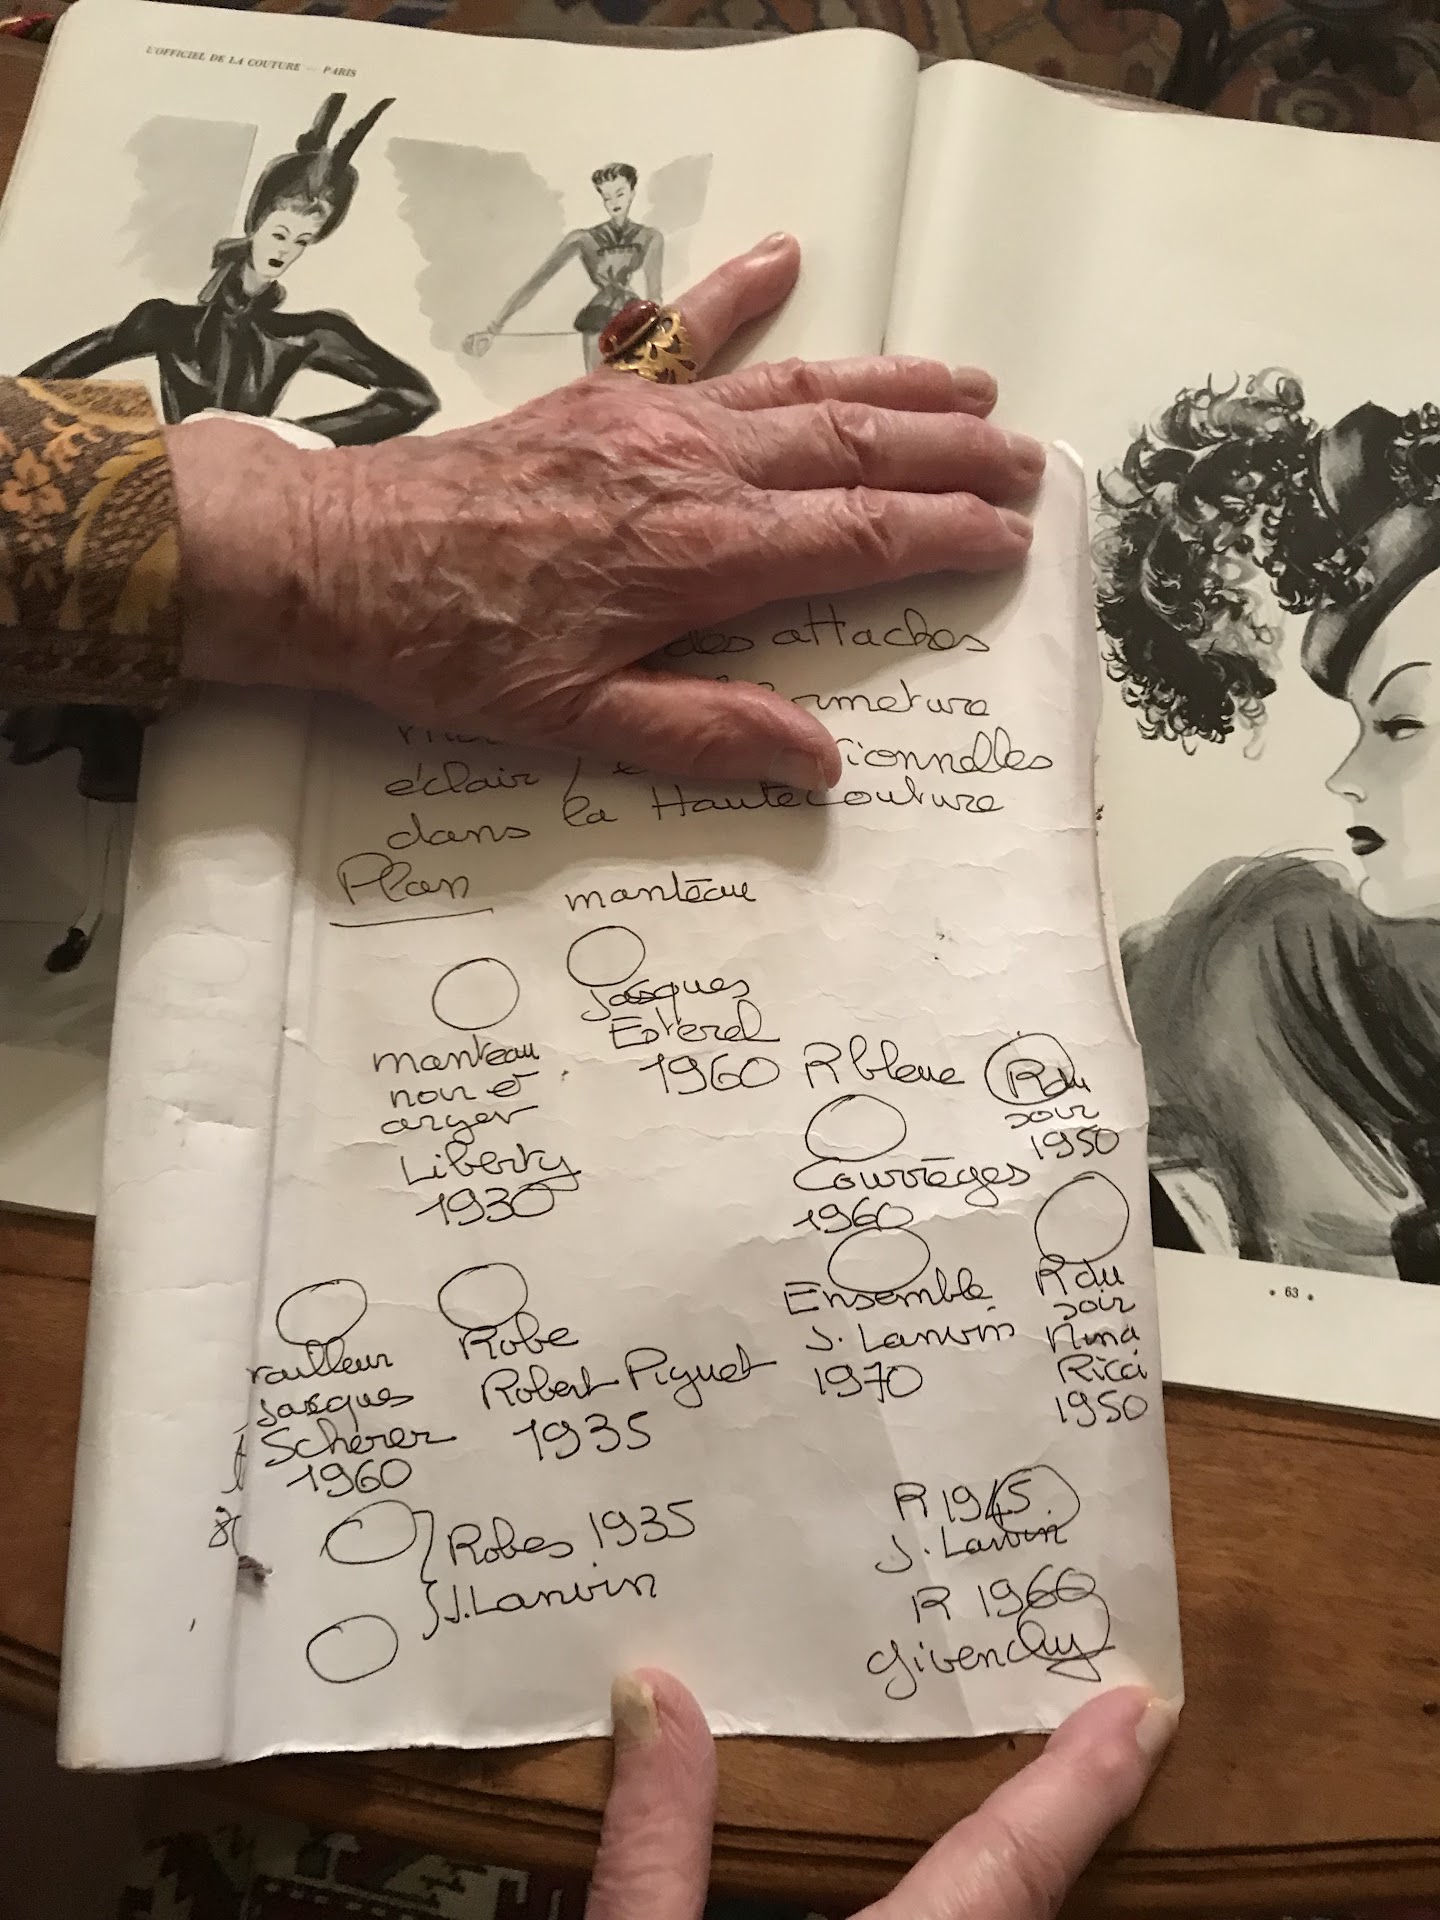 L'OFFICIEL DE LA COUTURE — PARIS
des attaches
rmeture
éclair / ionnelles
dans la Haute Couture
Plan
manteau
Jacques
Esterel
1960
manteau
noir et
argent
Liberty
1930
R bleue
Courrèges
1960
R du
soir
1950
Ensemble
J. Lanvin
1970
R du
soir
Nina
Ricci
1950
Tailleur
Jacques
Scherer
1960
Robe
Robert Piguet
1935
Robes 1935
J. Lanvin
R 1945
J. Lanvin
R 1960
Givenchy
• 63 •